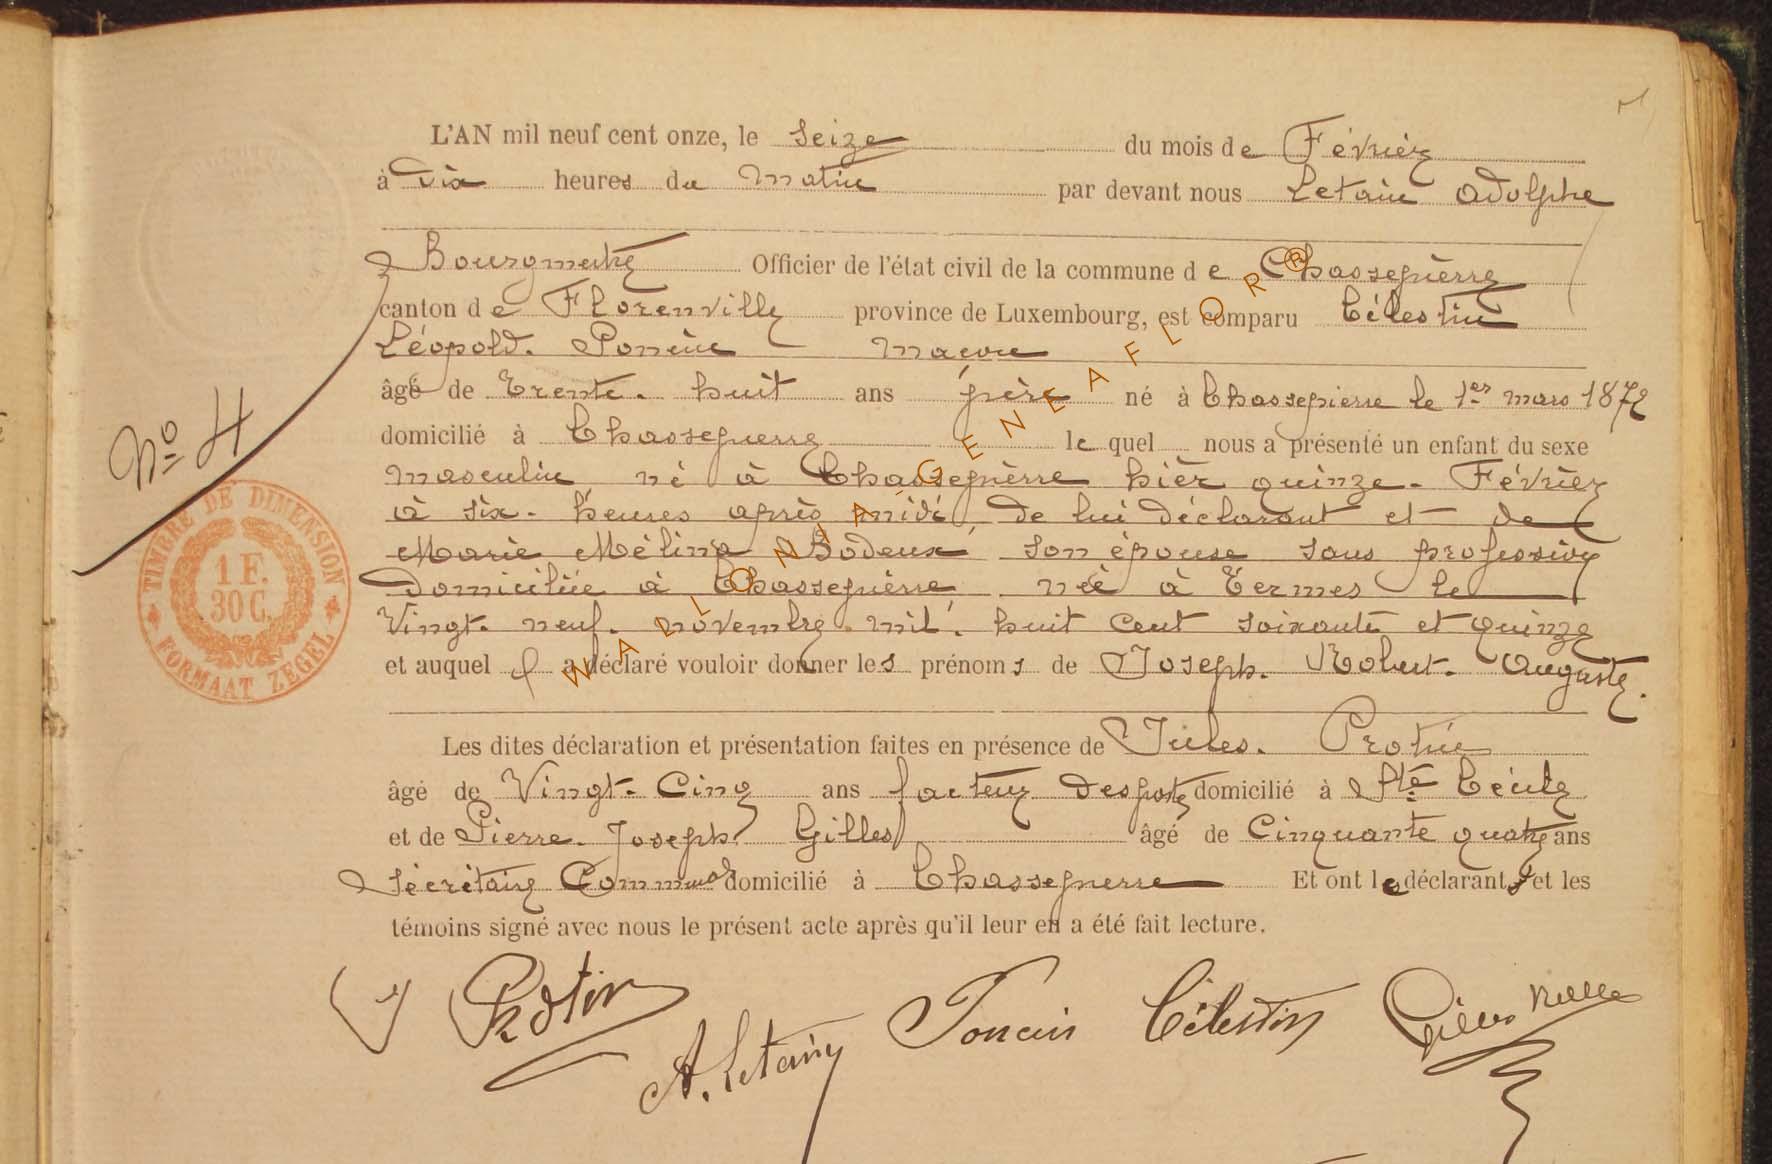 L'AN mil neuf cent onze, le Seize du mois de Février
à dix heures du Matin par devant nous Letain Adolphe
Bourgmestre Officier de l'état civil de la commune de Chassepierre
canton de Florenville province de Luxembourg, est comparu Célestin
Léopold. Poncin Maçon
âgé de Trente. huit ans père né à Chassepierre le 1er mars 1872
domicilié à Chassepierre le quel nous a présenté un enfant du sexe
masculin né à Chassepierre hier quinze. Février
à six. heures après midi, de lui déclarant et de
Marie Mélina Bodeux son épouse sans profession
domiciliée à Chassepierre née à Termes le
Vingt. neuf. novembre mil. huit cent soixante et quinze
et auquel il a déclaré vouloir donner les prénoms de Joseph. Robert. Auguste.
Les dites déclaration et présentation faites en présence de Jules. Protin
âgé de Vingt. Cinq ans facteur des postes domicilié à Ste Cécile
et de Pierre. Joseph. Gilles âgé de Cinquante quatre ans
Sécrétaire Communal domicilié à Chassepierre Et ont le déclarant et les
témoins signé avec nous le présent acte après qu'il leur en a été fait lecture.
No 4
TIMBRE DE DIMENSION
1 F.
30 C.
FORMAAT ZEGEL
WALLONIA GENEAFLORR ®
J Protin
A. Letain
Poncin Célestin
Gilles